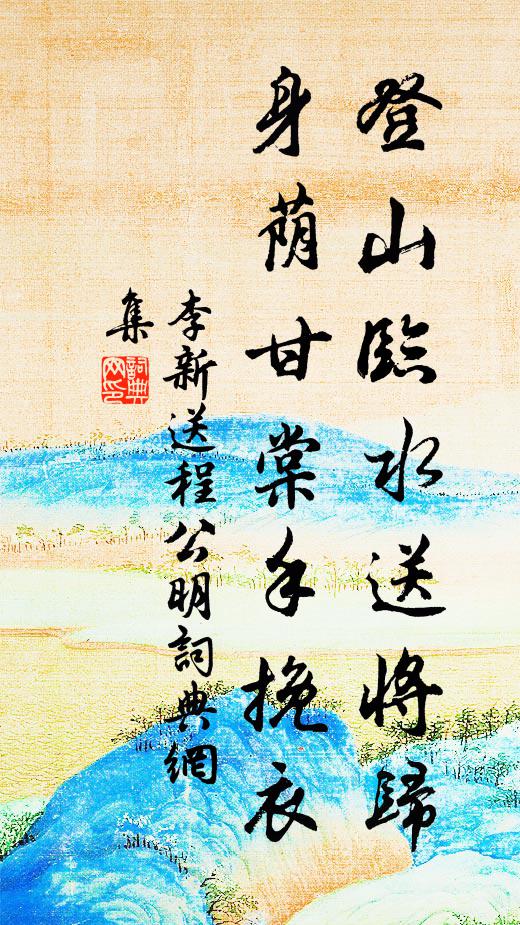 登山臨水送將歸
身蔭甘棠手挽衣
李新送程公明詞典網
集
詞典
網印